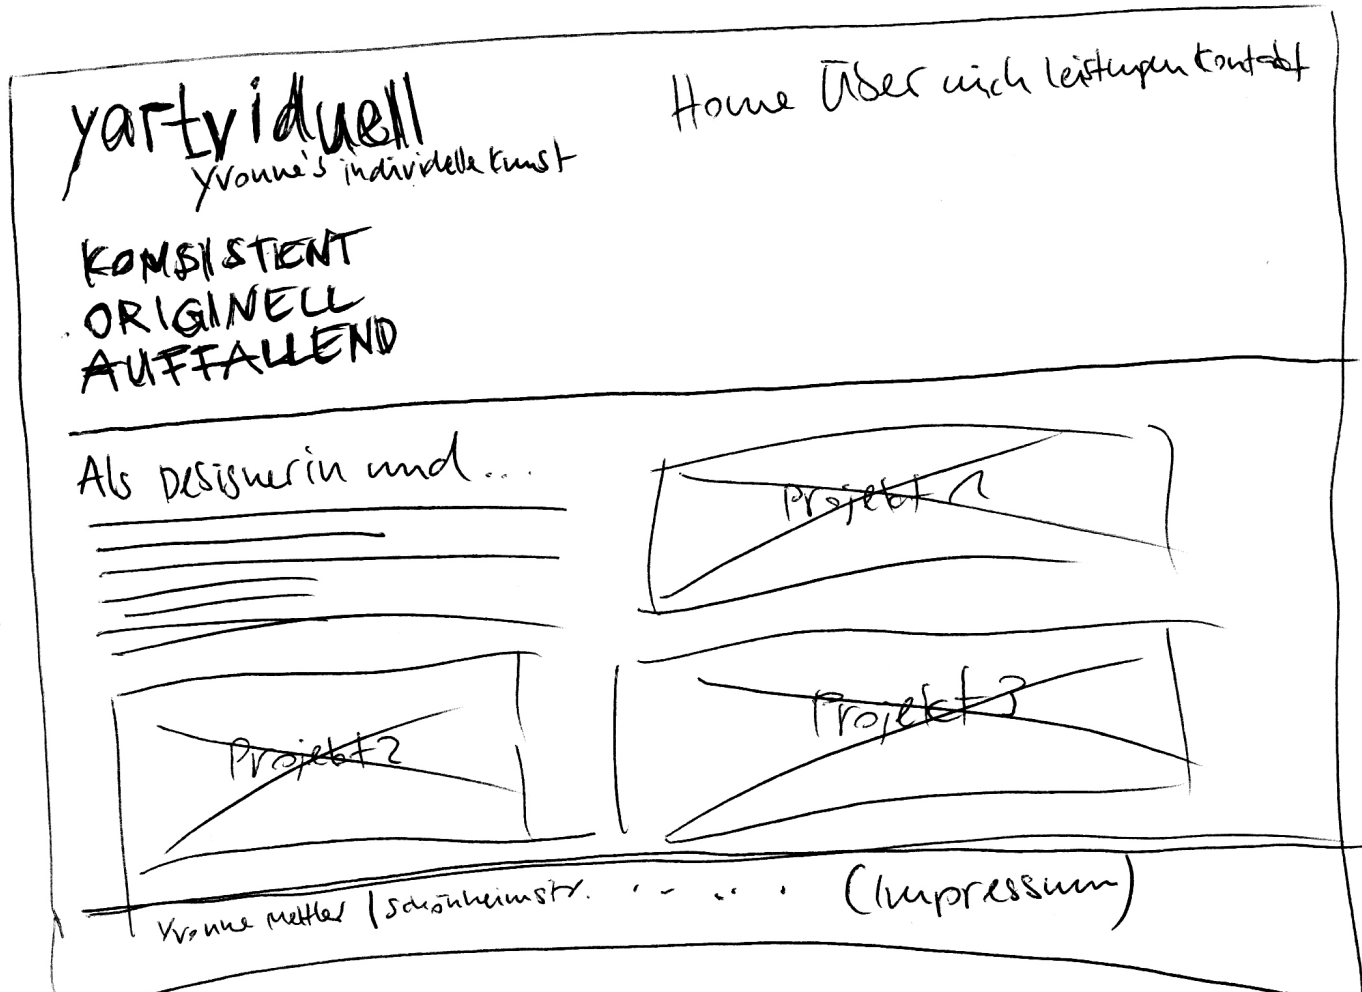 yartviduell
Yvonne's individelle Kunst
Home Über mich Leistungen Kontakt
KONSISTENT
ORIGINELL
AUFFALLEND
Als Designerin und...
Projekt 1
Projekt 2
Projekt 3
Yvonne Mettler | Schönheimstr. ..... (Impressum)